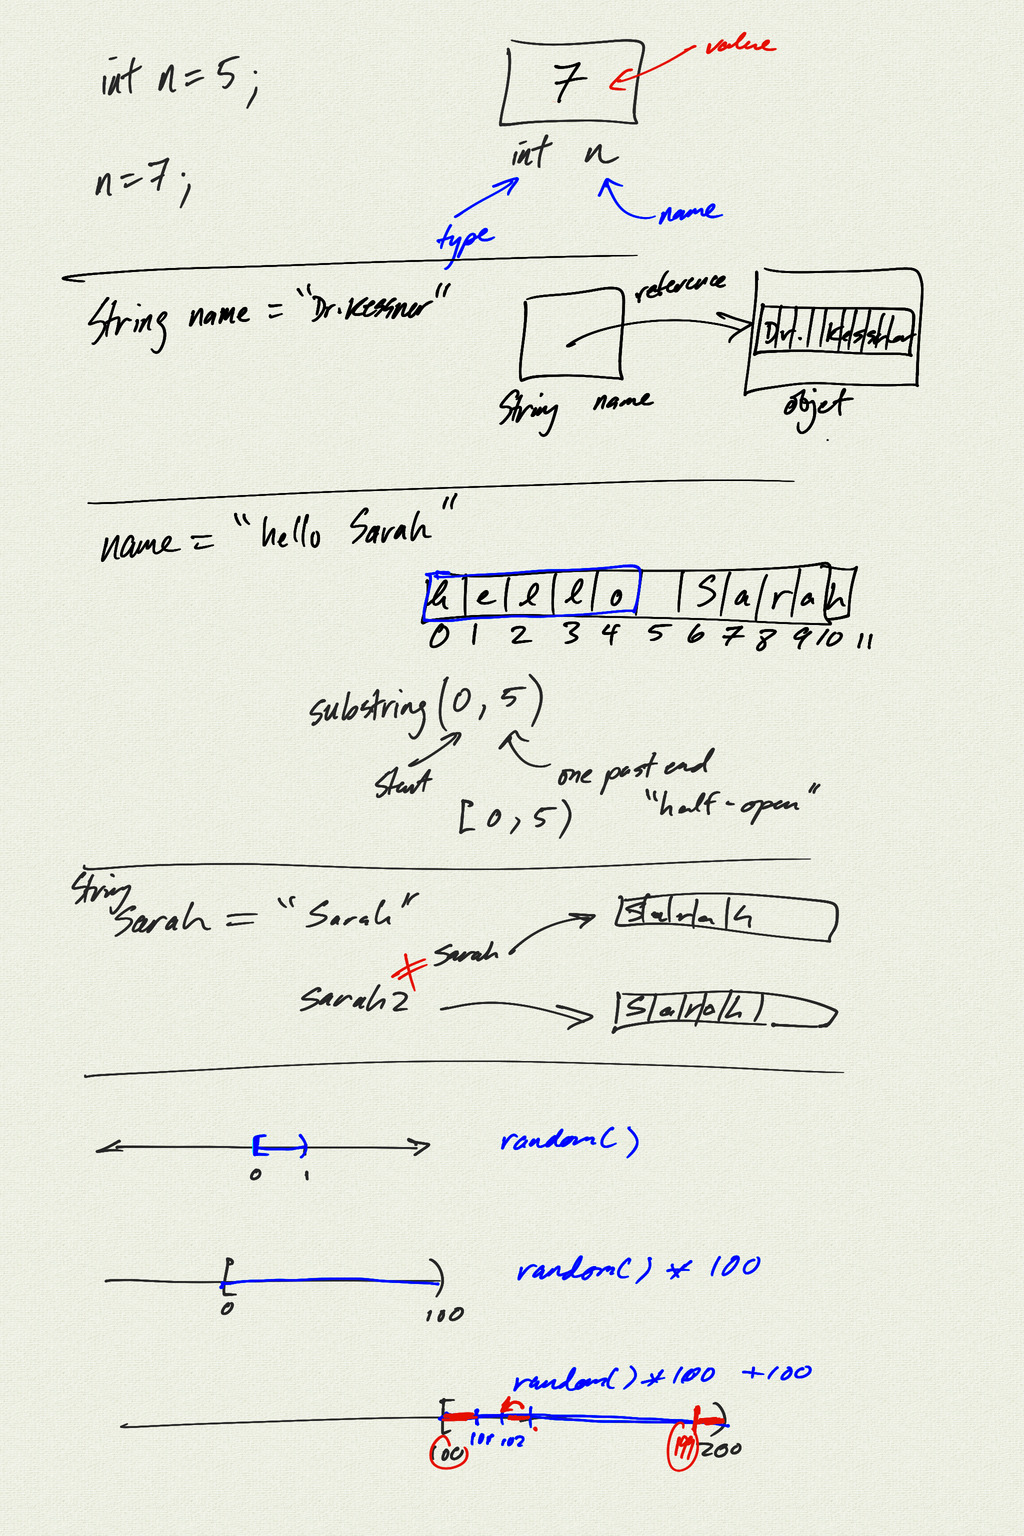 int n = 5;
7
value
int n
n = 7;
type
name
String name = "Dr. Kessner"
reference
Dr. Kessner
String name
objet
name = "hello Sarah"
hello Sarah
0 1 2 3 4 5 6 7 8 9 10 11
substring (0, 5)
start
one past end
[0, 5)
"half-open"
String
Sarah = "Sarah"
Sarah
Sarah
≠
Sarah2
Sarah
random()
0 1
random() * 100
0 100
random() * 100 + 100
100 101 102 199 200